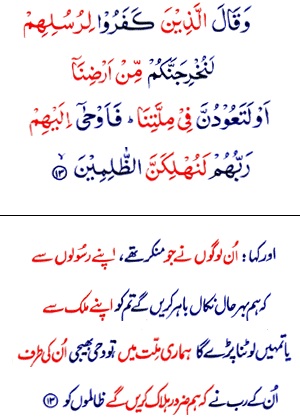 وَقَالَ الَّذِيْنَ كَفَرُوْا لِرُسُلِهِمْ
لَنُخْرِجَنَّكُمْ مِّنْ اَرْضِنَاۤ
اَوْ لَتَعُوْدُنَّ فِيْ مِلَّتِنَا ؕ فَاَوْحٰۤى اِلَيْهِمْ
رَبُّهُمْ لَنُهْلِكَنَّ الظّٰلِمِيْنَ ۙ﴿۱۳﴾
اور کہا: اُن لوگوں نے جو منکر تھے، اپنے رسُولوں سے
کہ ہم بہر حال نکال باہر کریں گے تم کو اپنے ملک سے
یا تمہیں لوٹنا پڑے گا ہماری مِلّت میں تو وحی بھیجی اُن کی طرف
اُن کے رب نے کہ ہم ضرور ہلاک کریں گے ظالموں کو ﴿۱۳﴾